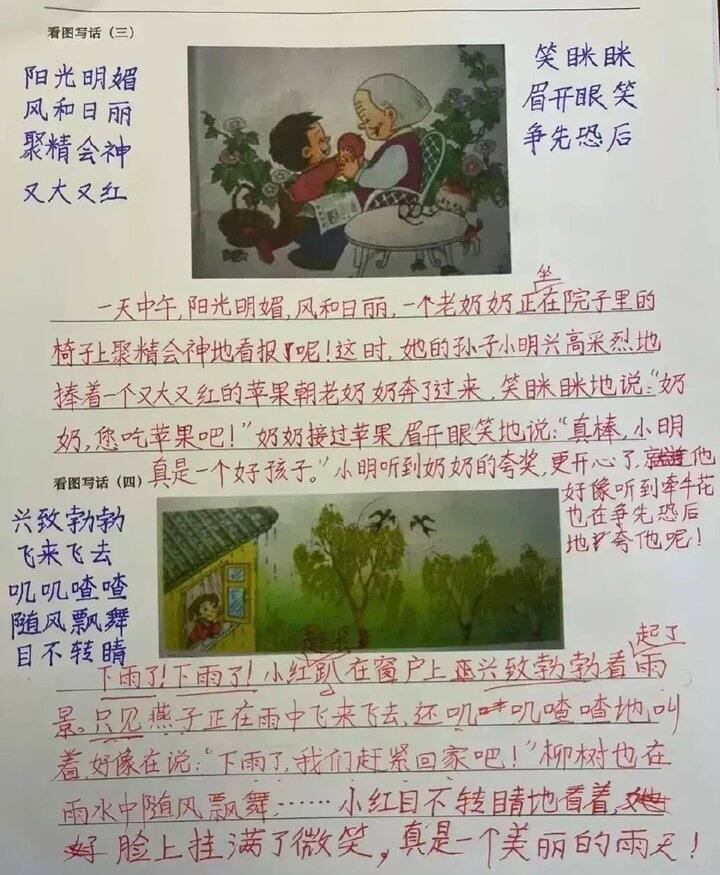 看图写话（三）
阳光明媚
风和日丽
聚精会神
又大又红
笑眯眯
眉开眼笑
争先恐后
坐
一天中午,阳光明媚,风和日丽,一个老奶奶正在院子里的
椅子上聚精会神地看报呢!这时,她的孙子小明兴高采烈地
捧着一个又大又红的苹果朝老奶奶奔了过来,笑眯眯地说:“奶
奶,您吃苹果吧!”奶奶接过苹果眉开眼笑地说:“真棒,小明
真是一个好孩子。”小明听到奶奶的夸奖,更开心了,他
好像听到牵牛花
也在争先恐后
地夸他呢!
看图写话（四）
兴致勃勃
飞来飞去
叽叽喳喳
随风飘舞
目不转睛
赶紧
起了
下雨了!下雨了!小红趴在窗户上兴致勃勃看雨
景。只见燕子正在雨中飞来飞去,还叽叽喳喳地叫
着,好像在说:“下雨了,我们赶紧回家吧!”柳树也在
雨水中随风飘舞……小红目不转睛地看着,
脸上挂满了微笑,真是一个美丽的雨天!